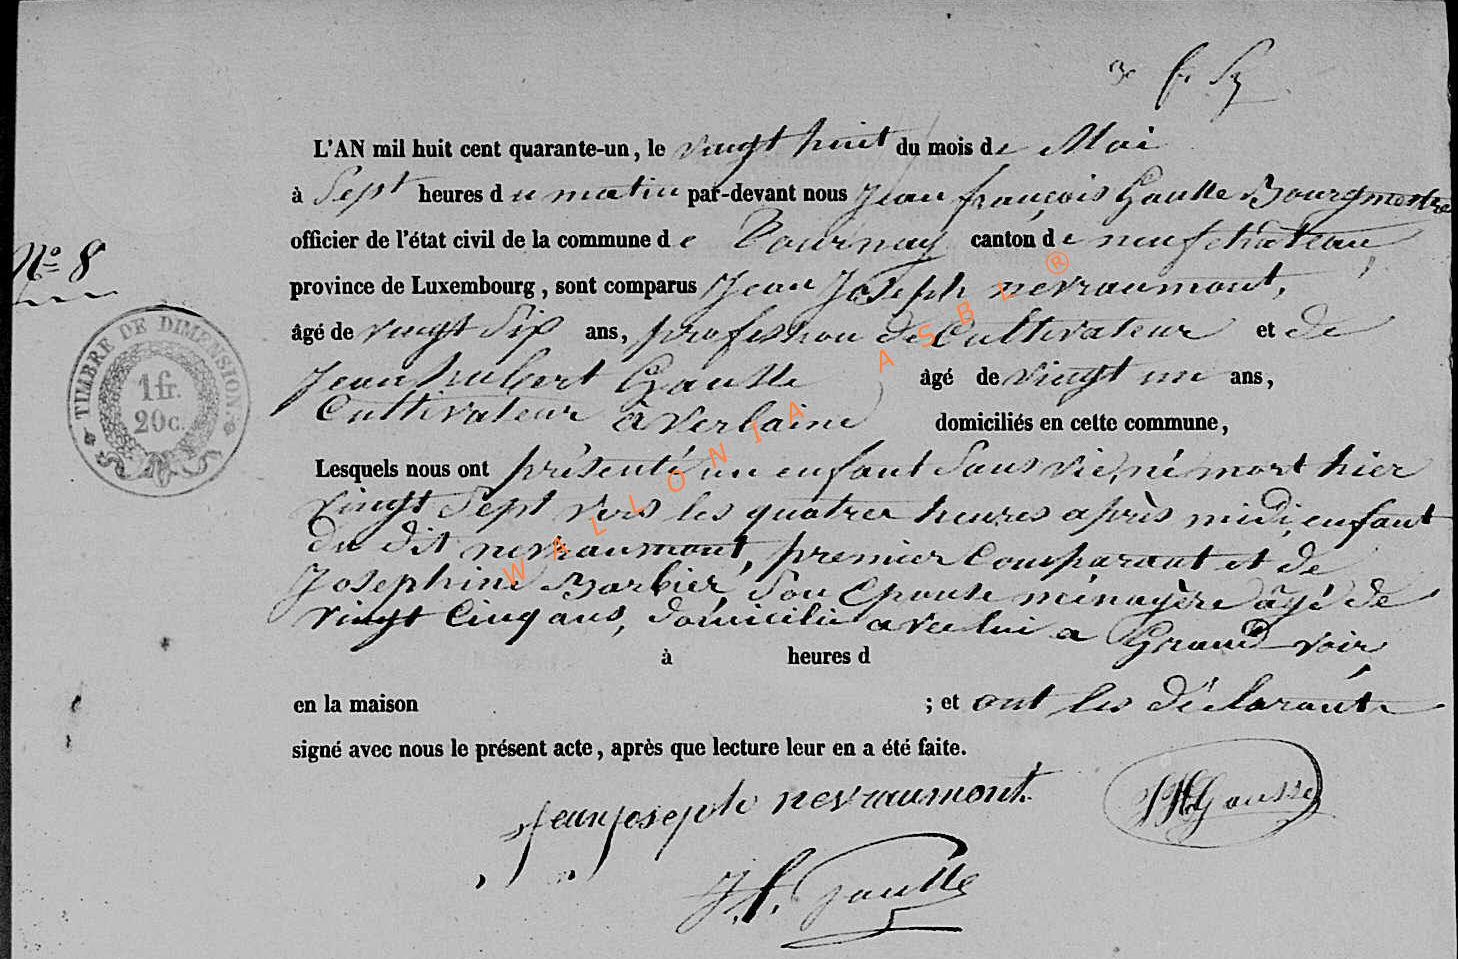 L'AN mil huit cent quarante-un, le vingt huit du mois de Mai
à Sept heures du matin par-devant nous Jean françois Gausse Bourgmestre
officier de l'état civil de la commune de Tournay canton de neufchateau,
N° 8
province de Luxembourg, sont comparus Jean Joseph nevraumont,
âgé de vingt Six ans, profession de Cultivateur et de
TIMBRE DE DIMENSION.
1 fr.
20 c.
Jean hubert Gausse âgé de vingt un ans,
Cultivateur à verlaine domiciliés en cette commune,
Lesquels nous ont présenté un enfant Sans vie, né mort hier
vingt Sept vers les quatres heures après midi, enfant
du dit nevraumont, premier Comparant et de
Josephine Barbier, Son Epouse ménagère âgé de
vingt Cinq ans, domicilié avec lui a Grand-voir,
à heures d
en la maison ; et ont les déclarants
signé avec nous le présent acte, après que lecture leur en a été faite.
jean joseph nevraumont
JH Gausse
J.f. Gausse
WALLONIA ASBL ®